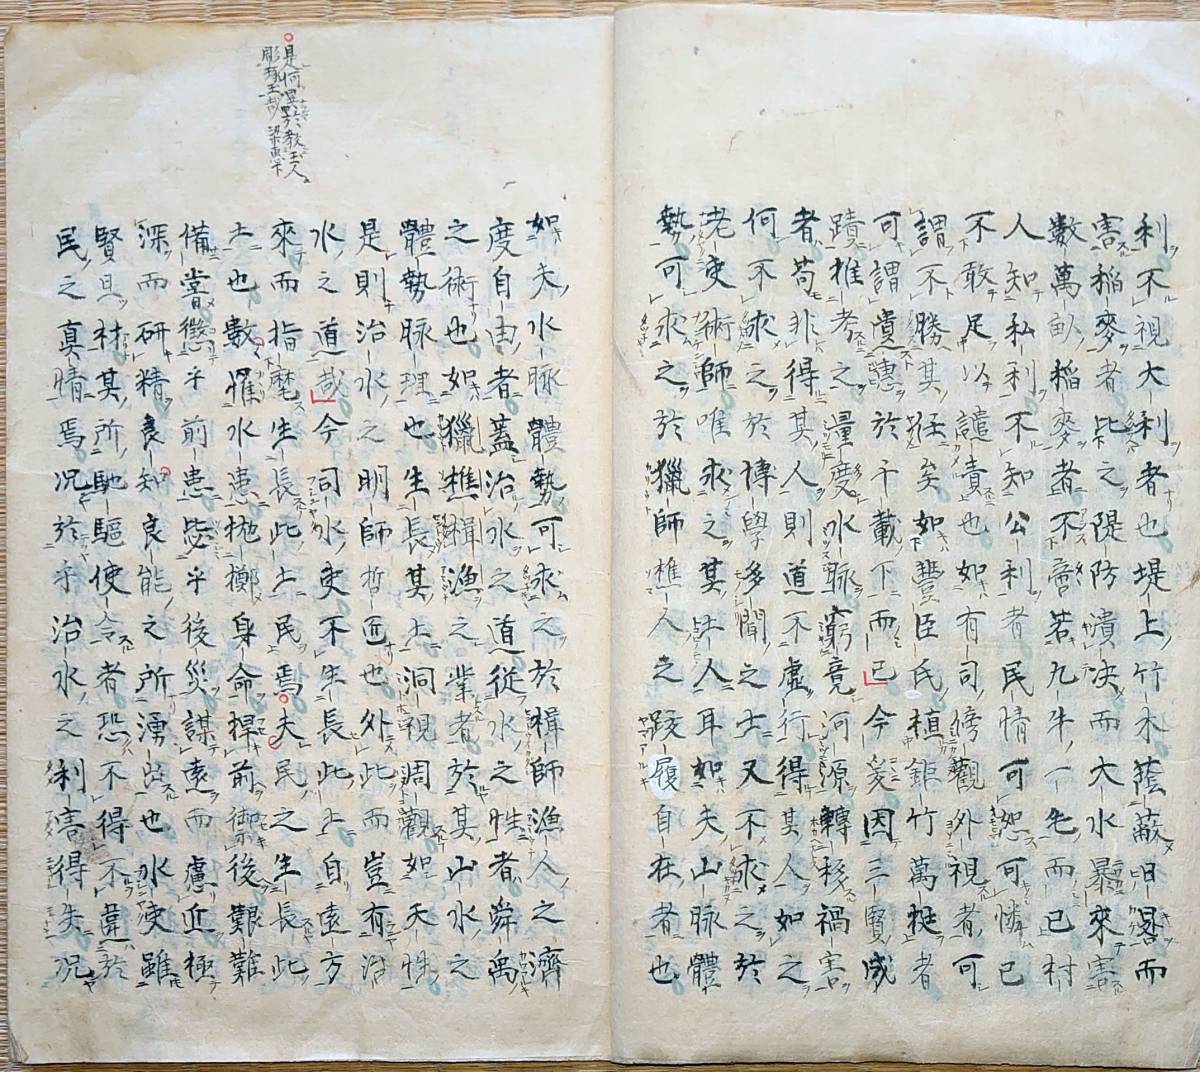 利不視大利者也堤上竹木蔭蔽日晷而
害稲麥者比之隄防潰决而大水暴來害
數萬畝稲麥者不啻若九牛一毛而已村
人知私利不知公利者民情可恕可憐已
不敢足以譴責也如有司傍觀外視者可
謂不勝其任矣如豐臣氏植鉅竹萬挺者
可謂遺德於千載下而已今爰因三賢成
蹟推考之量度水脉窮竟河源轉移禍害
者苟非得其人則道不虚行得其人如之
何不求之於博學多聞之士又不求之於
老吏術師唯求之其土人耳如夫山脉體
勢可求之於獵師樵人之跋履自在者也
是何異於教玉人
彫琢玉哉 梁惠下
如夫水脉體勢可求之於楫師漁人之濟
度自由者蓋治水之道從水之性者舜禹
之術也如獵樵楫漁之業者於其山水之
體勢脉理也生長其土洞視周觀如天性
是則治水之明師哲匠也外此而豈有治
水之道哉今司水吏不生長此土自遠方
來而指麾生長此土民焉夫民之生長此
土也數罹水患抛擲身命捍前御後艱難
備嘗懲乎前患毖乎後災謀遠而慮近極
深而研精良知良能之所湧出也水吏雖
賢且材其所馳驅使令者恐不得不違於
民之真情焉况於乎治水之利害得失况